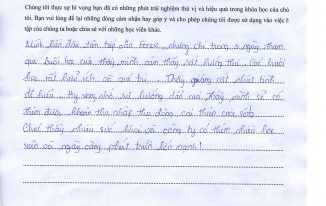 Chúng tôi thực sự hi vọng bạn đã có những phút trải nghiệm thú vị và hiệu quả trong khóa học của chú
tôi. Bạn vui lòng để lại những dòng cảm nhận hay góp ý và cho phép chúng tôi được sử dụng vào việc
tập của chúng ta hoặc chia sẻ với những học viên khác.
lần đầu tiên tiếp cận Forex, nhưng chỉ trong 2 ngày tham
qua buổi học của thầy mình cảm thấy rất hứng thú. Các buổi
học rất hữu ích và quá trị. Thầy giảng rất nhiệt tình
dễ hiểu. Hy vọng nhờ sự hướng dẫn của Thầy, mình sẽ có
thêm được khoản thu nhập thụ động, cải thiện cuộc sống
Chúc thầy nhiều sức khoẻ và công ty có thêm nhiều học
viên và ngày càng phát triển lớn mạnh!